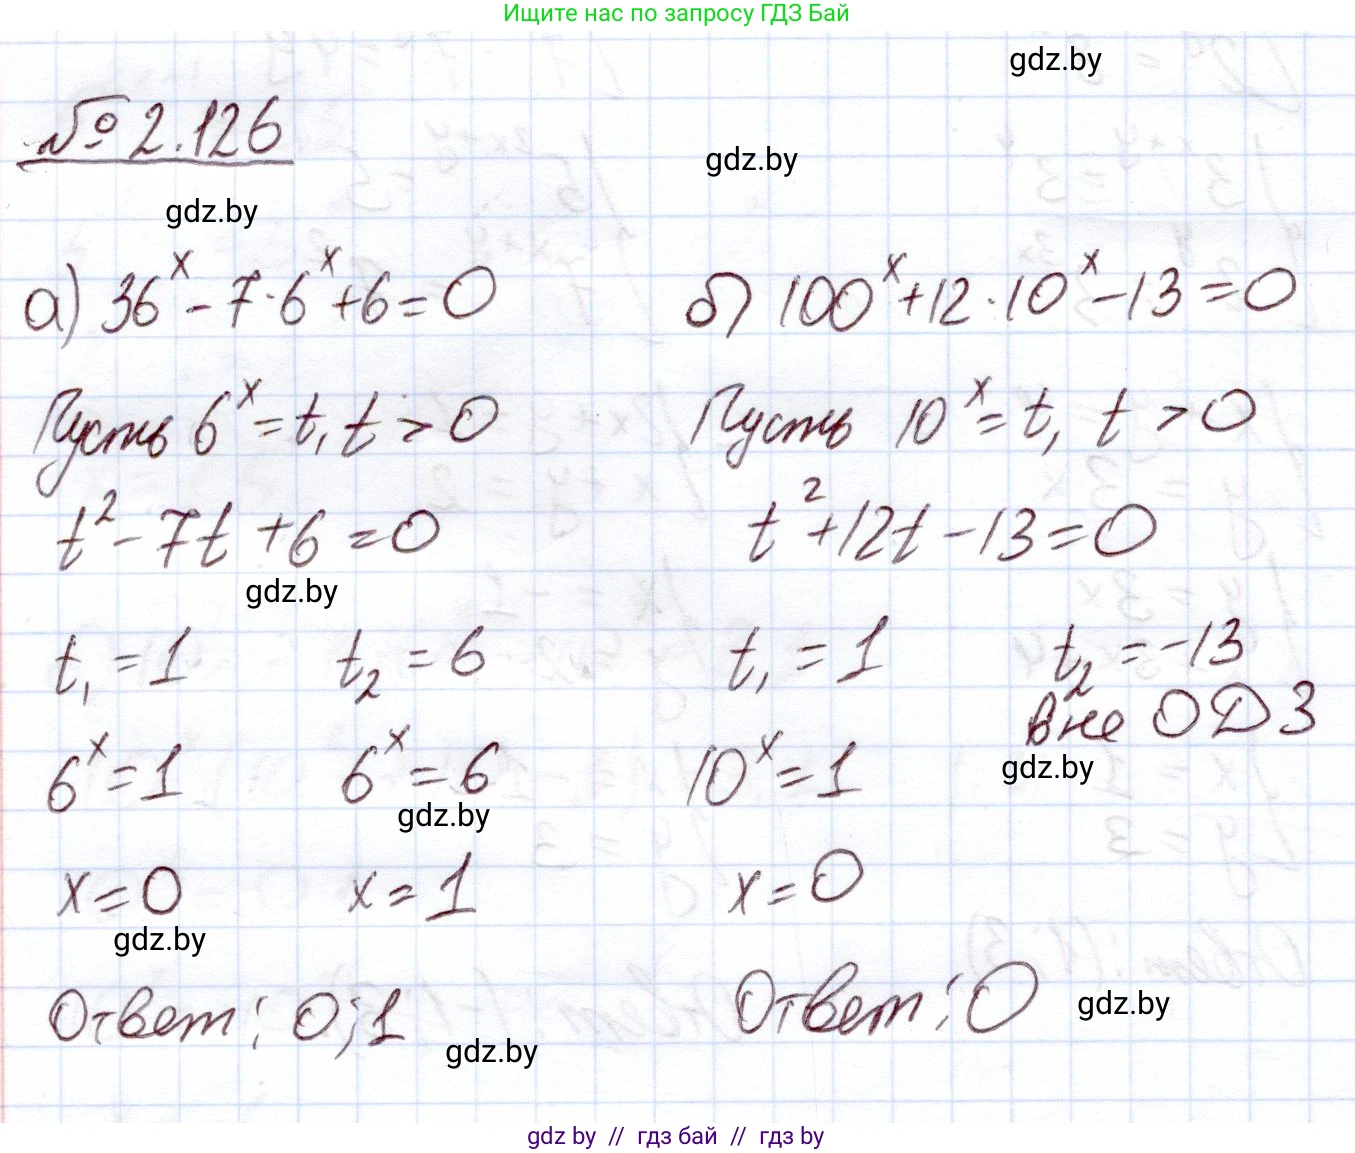 Ищите нас по запросу ГДЗ Бай
gdz.by
№ 2.126
gdz.by
gdz.by
а) 36^x - 7·6^x + 6 = 0
Пусть 6^x = t, t > 0
t^2 - 7t + 6 = 0
gdz.by
t_1 = 1 t_2 = 6
6^x = 1 6^x = 6
gdz.by
x = 0 x = 1
gdz.by
Ответ: 0; 1
gdz.by
б) 100^x + 12·10^x - 13 = 0
Пусть 10^x = t, t > 0
t^2 + 12t - 13 = 0
t_1 = 1 t_2 = -13
вне ОДЗ
gdz.by
10^x = 1
x = 0
Ответ: 0
gdz.by
gdz by // гдз бай // гдз by